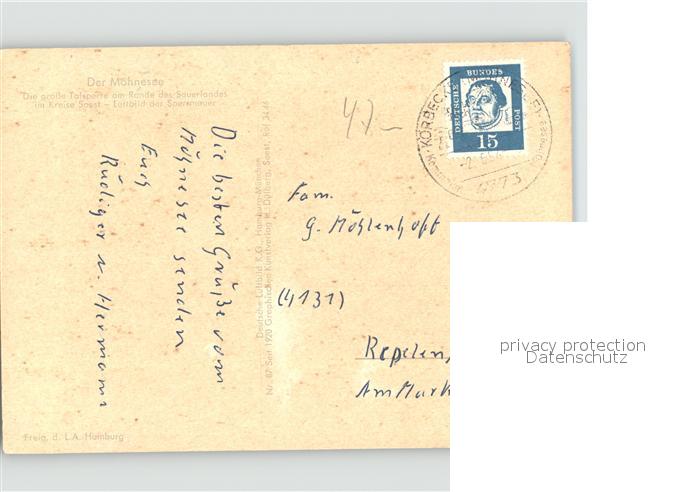 Der Möhnesee
Die große Talsperre am Rande des Sauerlandes
im Kreise Soest – Luftbild der Sperrmauer
Die besten Grüße vom
Möhnesee senden
Euch
Rüdiger u. Hermann
Freig. d. L.A. Hamburg
Deutsche Luftbild K.G., Hamburg-München
Nr. 87 Seit 1920 Graphischer Kunstverlag H. Dülberg, Soest, Ruf 3446
DEUTSCHE
BUNDES
POST
15
KÖRBECKE
4773
Fam.
G. Möhlenhoff
(4131)
Repelen,
Am Mark
privacy protection
Datenschutz